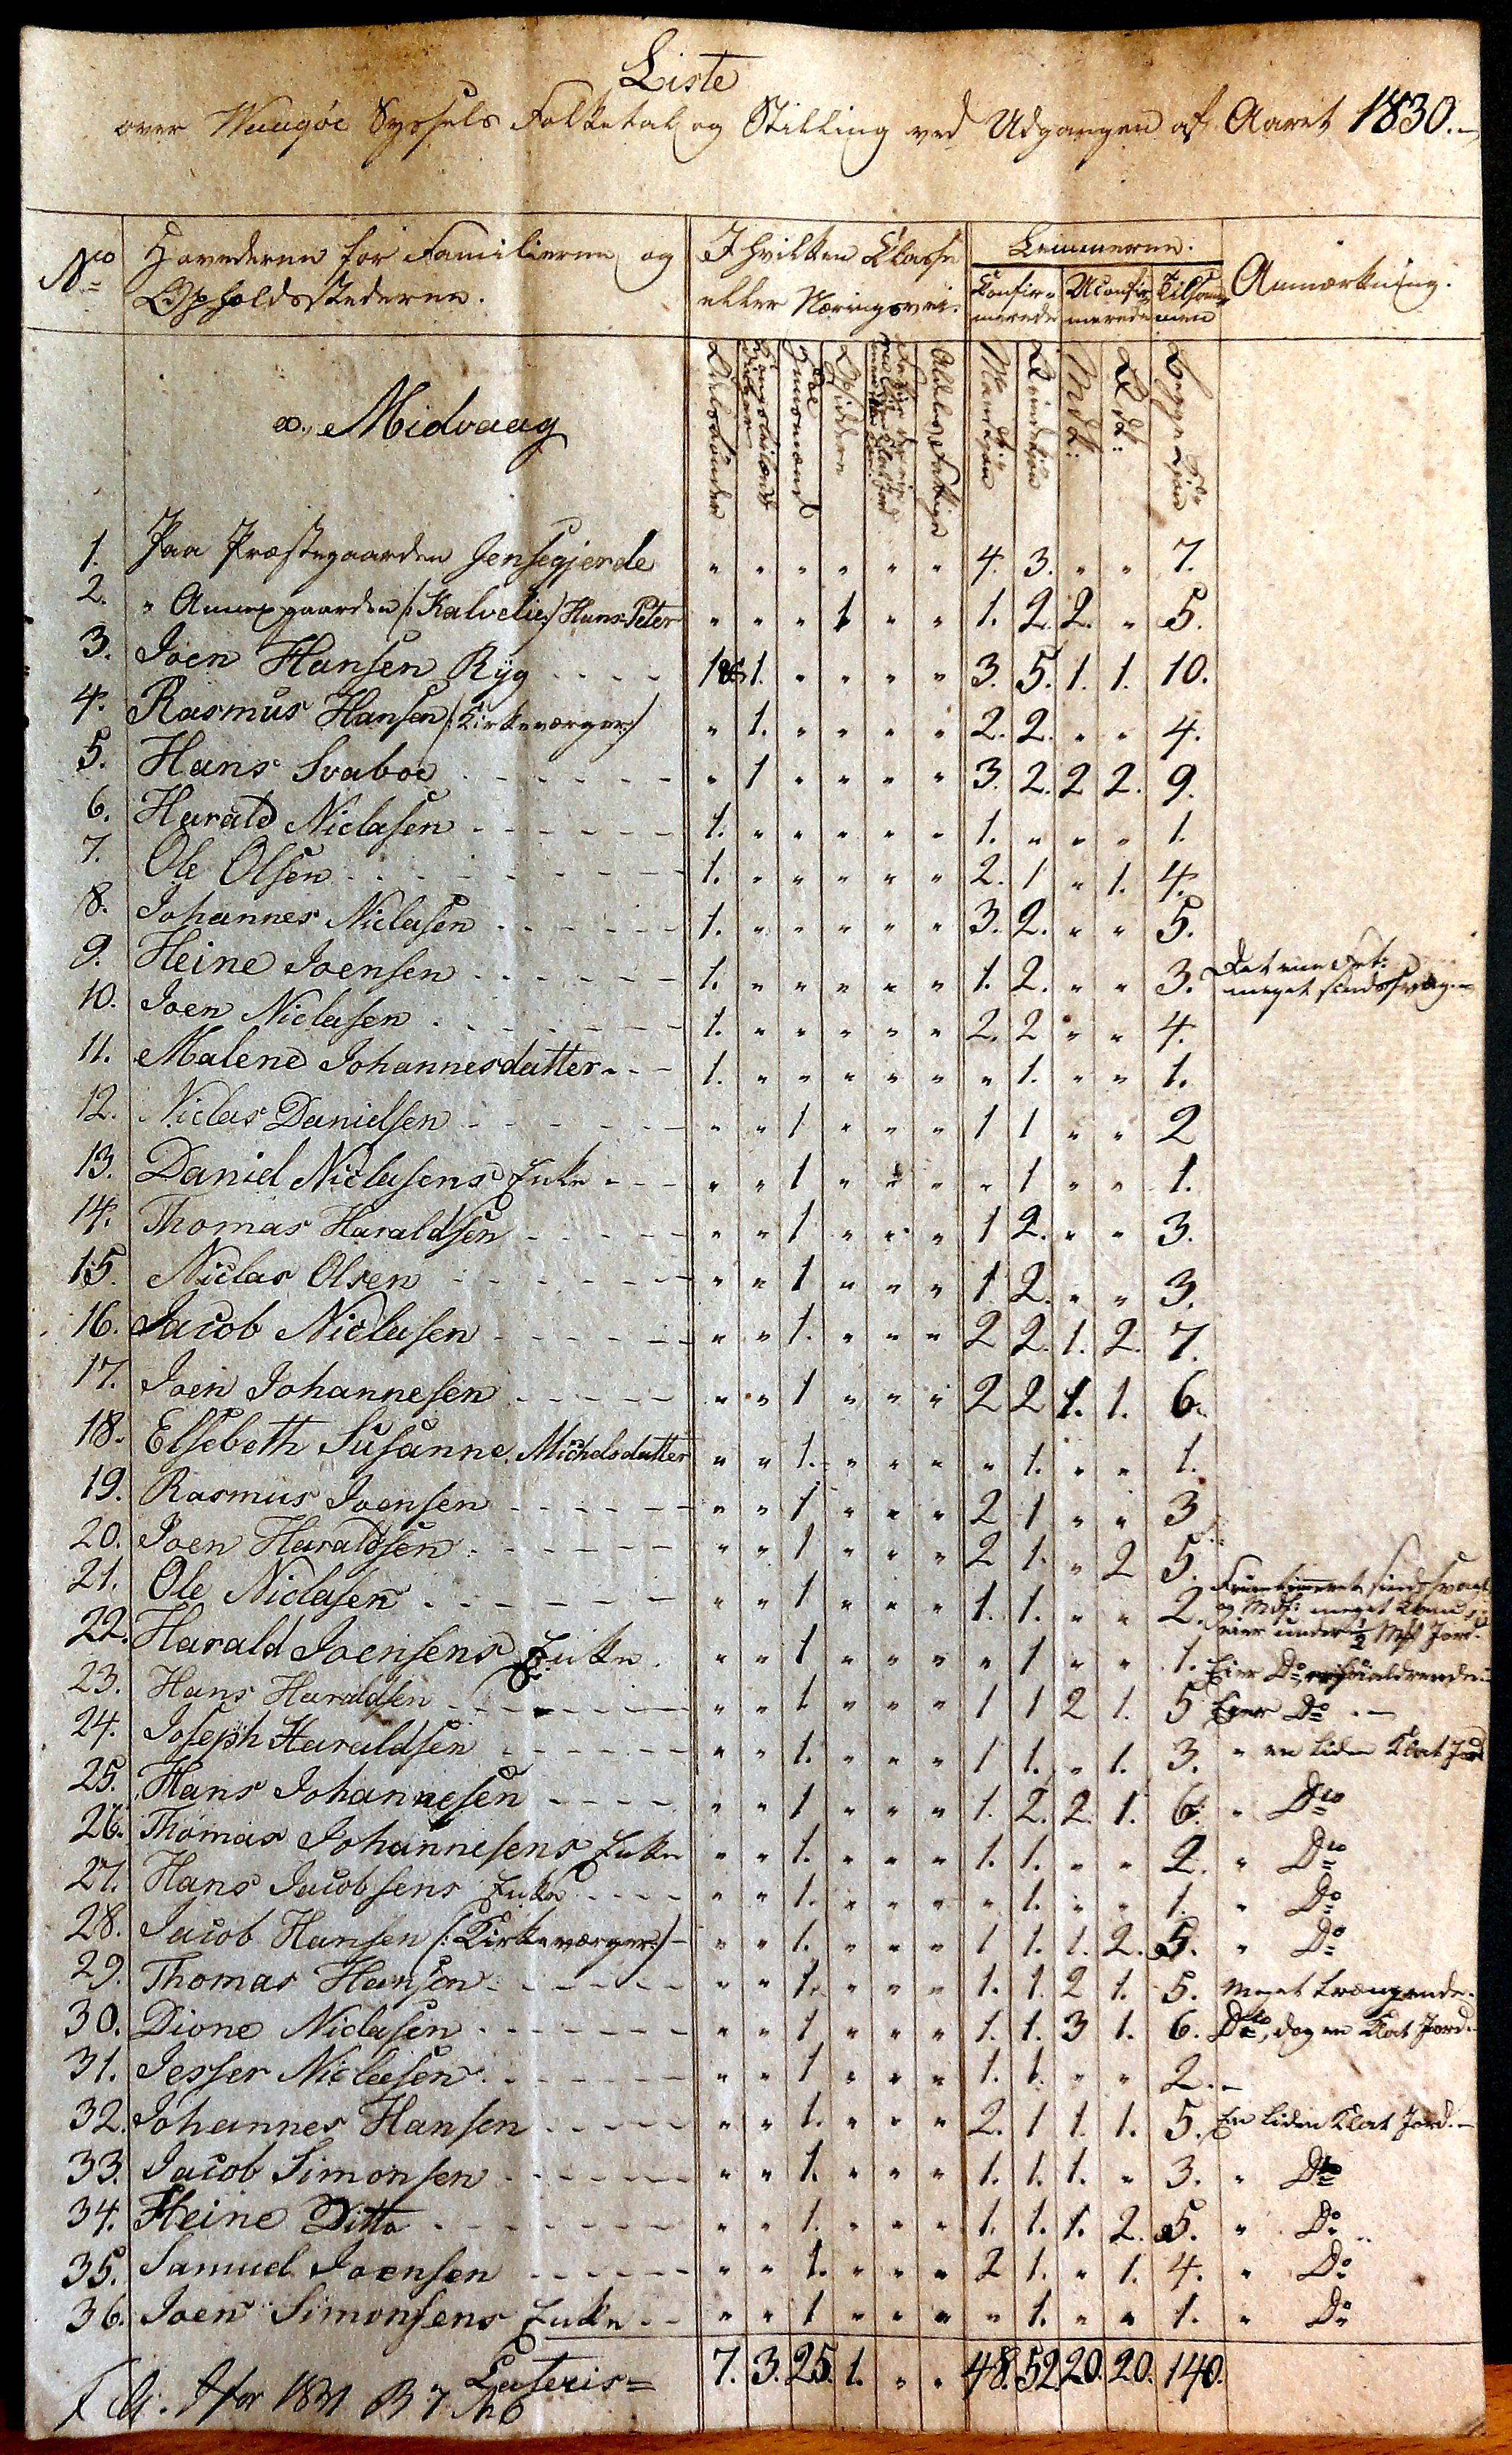 Liste
over Waagøe Syssels Folketal og Stilling ved Udgangen af Aaret 1830.
No Hovederne for Familierne og Opholdsstederne. I hvilken Classe eller Næringsvei. Lemmerne. Anmærkning.
Konfir-merede Uconfir-merede Tilsam-men
Odelsbønder Kongsleilænd Huusmænd Opsiddere Mandkjøn Qvindekjøn Mdk: Qdk: Begge Kjøn
a., Midvaag
1. Paa Præstegaarden Jensegjerde " " " " " " 4. 3. " " 7.
2. " Annexgaarden (: Kalvelie:) Hans Peter " " " 1 " " 1. 2. 2. " 5.
3. Joen Hansen Ryg 1 og 1. " " " " 3. 5. 1. 1. 10.
4. Rasmus Hansen (: Kirkeværger:) " 1. " " " " 2. 2. " " 4.
5. Hans Svaboe " 1 " " " " 3. 2. 2 2. 9.
6. Harald Niclasen 1. " " " " " 1. " " " 1.
7. Ole Olsen 1. " " " " " 2. 1 " 1. 4.
8. Johannes Niclasen 1. " " " " " 3. 2. " " 5.
9. Heine Joensen 1. " " " " " 1. 2. " " 3. Det ene Frt: meget sindssvag.
10. Joen Niclasen 1. " " " " " 2. 2 " " 4.
11. Malene Johannesdatter 1. " " " " " " 1. " " 1.
12. Niclas Danielsen " " 1 " " " 1 1 " " 2
13. Daniel Niclasens Enke " " 1 " " " " 1 " " 1.
14. Thomas Haraldsen " " 1 " " " 1 2. " " 3.
15. Niclas Olsen " " 1 " " " 1 2. " " 3.
16. Jacob Niclasen " " 1. " " " 2 2. 1. 2. 7.
17. Joen Johannesen " " 1 " " " 2 2 1. 1. 6.
18. Elsebeth Susanne Michelsdatter " " 1. " " " " 1. " " 1.
19. Rasmus Joensen " " 1 " " " 2 1 " " 3
20. Joen Haraldsen " " 1 " " " 2 1. " 2 5.
21. Ole Niclasen " " 1 " " " 1. 1. " " 2. Fruentimmeret sindssvagt og Mdk: meget eier under ½ Mk Jord.
22. Harald Joensens Enke " " 1 " " " " 1 " " 1. Eier Do,
23. Hans Haraldsen " " 1 " " " 1 1 2 1. 5 Eier Do
24. Joseph Haraldsen " " 1. " " " 1 1. " 1. 3. " en liden Klat Jord
25. Hans Johannesen " " 1 " " " 1. 2. 2 1. 6. " Dito
26. Thomas Johannesens Enke " " 1. " " " 1. 1. " " 2. " Dito
27. Hans Jacobsens Enke " " 1. " " " " 1. " " 1. " Do
28. Jacob Hansen (: Kirkeværger:) " " 1. " " " 1 1. 1. 2. 5. " Do
29. Thomas Hanson " " 1. " " " 1. 1. 2 1. 5. Meget trængende.
30. Dione Niclasen " " 1 " " " 1. 1. 3 1. 6. Dito, dog en Klat Jord.
31. Jesser Niclasen " " 1 " " " 1. 1. " " 2.
32. Johannes Hansen " " 1. " " " 2. 1 1. 1. 5. En liden Klat Jord.
33. Jacob Simonsen " " 1. " " " 1. 1. 1. " 3. " Do
34. Heine Ditto " " 1. " " " 1. 1. 1. 2. 5. " Do
35. Samuel Joensen " " 1. " " " 2 1. " 1. 4. " Do
36. Joen Simonsens Enke " " 1 " " " " 1. " " 1. " Do
Lateris = 7. 3. 25. 1. " " 48. 52. 20. 20. 140.
1831 B 7 № 6